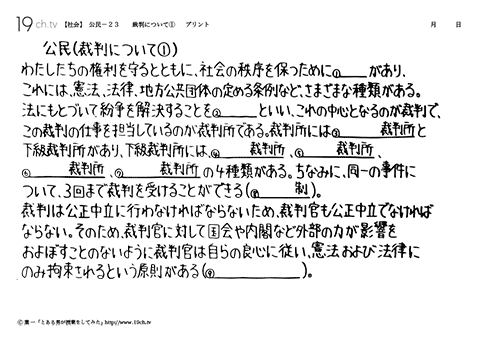 19ch.tv 【社会】 公民－２３ 裁判について① プリント 月 日
公民(裁判について①)
わたしたちの権利を守るとともに、社会の秩序を保つために①＿＿があり、
これには、憲法、法律、地方公共団体の定める条例など、さまざまな種類がある。
法にもとづいて紛争を解決することを②＿＿といい、これの中心となるのが裁判で、
この裁判の仕事を担当しているのが裁判所である。裁判所には③＿＿裁判所と
下級裁判所があり、下級裁判所には、④＿＿裁判所、⑤＿＿裁判所、
⑥＿＿裁判所、⑦＿＿裁判所の4種類がある。ちなみに、同一の事件に
ついて、3回まで裁判を受けることができる(⑧＿＿制)。
裁判は公正中立に行わなければならないため、裁判官も公正中立でなければ
ならない。そのため、裁判官に対して国会や内閣など外部の力が影響を
およぼすことのないように裁判官は自らの良心に従い、憲法および法律に
のみ拘束されるという原則がある(⑨＿＿)。
Ⓒ葉一「とある男が授業をしてみた」http://www.19ch.tv